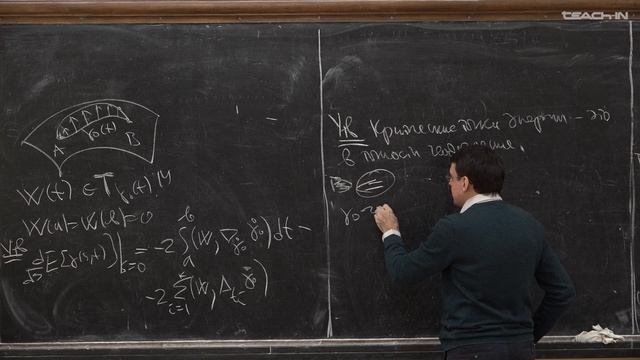 TEACH-IN
γ₀(t)
A B
W(t) ∈ T_{γ₀(t)} M
W(a) = W(b) = 0
Утв
d/ds E[γ(s,t)]|_{s=0} = -2 ∫_a^b (W, ∇_{γ̇₀} γ̇₀) dt -
-2 Σ_{i=1} (W, Δ_{t_i} γ̇₀)
Утв Критические точки энергии - это
в точности геодезические.
γ₀